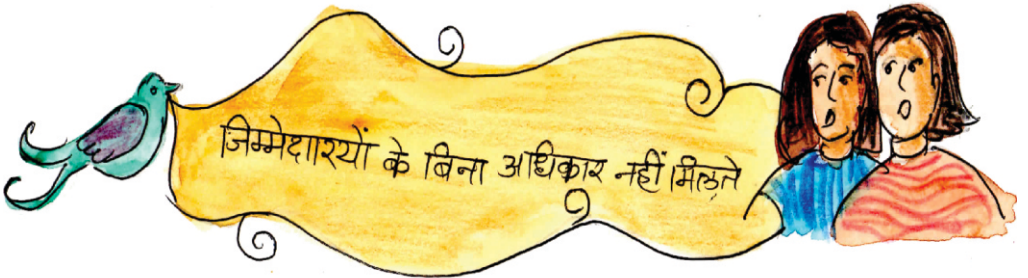 जिम्मेदारियों के बिना अधिकार नहीं मिलते